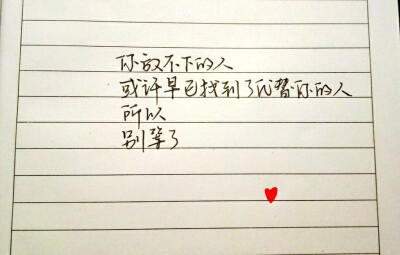 你放不下的人
或许早已找到了代替你的人
所以
别等了